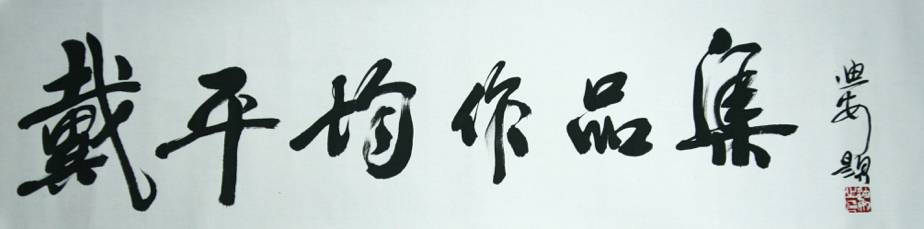 戴平均作品集
迪安题